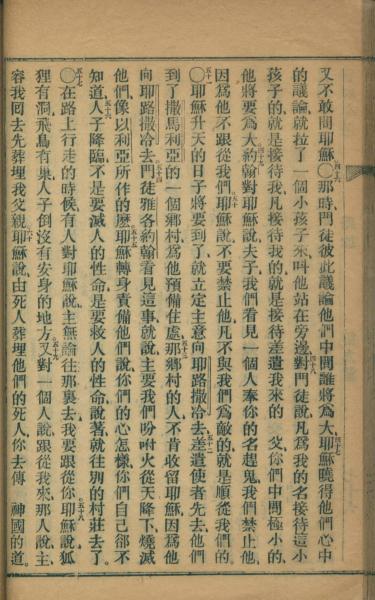 又不敢問耶穌〇四十六那時門徒彼此議論他們中間誰將爲大四十七耶穌曉得他們心中
的議論就拉了一個小孩子來叫他站在旁邊四十八對門徒說凡爲我的名接待這小
孩子的就是接待我凡接待我的就是接待差遣我來的 父你們中間極小的、
他將要爲大四十九約翰對耶穌說夫子我們看見一個人奉你的名趕鬼我們禁止他、
因爲他不跟從我們五十耶穌說不要禁止他凡不與我們爲敵的就是順從我們的。
〇五十一耶穌升天的日子將要到了就立定主意向耶路撒冷去五十二差遣使者先去他們
到了撒馬利亞的一個鄉村爲他預備住處五十三那鄉村的人不肯收留耶穌因爲他
向耶路撒冷去五十四門徒雅各約翰看見這事就說主要我們吩咐火從天降下燒滅
他們像以利亞所作的麽五十五耶穌轉身責備他們說你們的心怎樣你們自己郤不
知道五十六人子降臨不是要滅人的性命是要救人的性命說著就往別的村莊去了。
〇五十七在路上行走的時候有人對耶穌說主無論往那裏去我要跟從你五十八耶穌說狐
狸有洞飛鳥有巢人子倒沒有安身的地方五十九又對一個人說跟從我來那人說主、
容我回去先葬埋我父親六十耶穌說由死人葬埋他們的死人你去傳 神國的道。